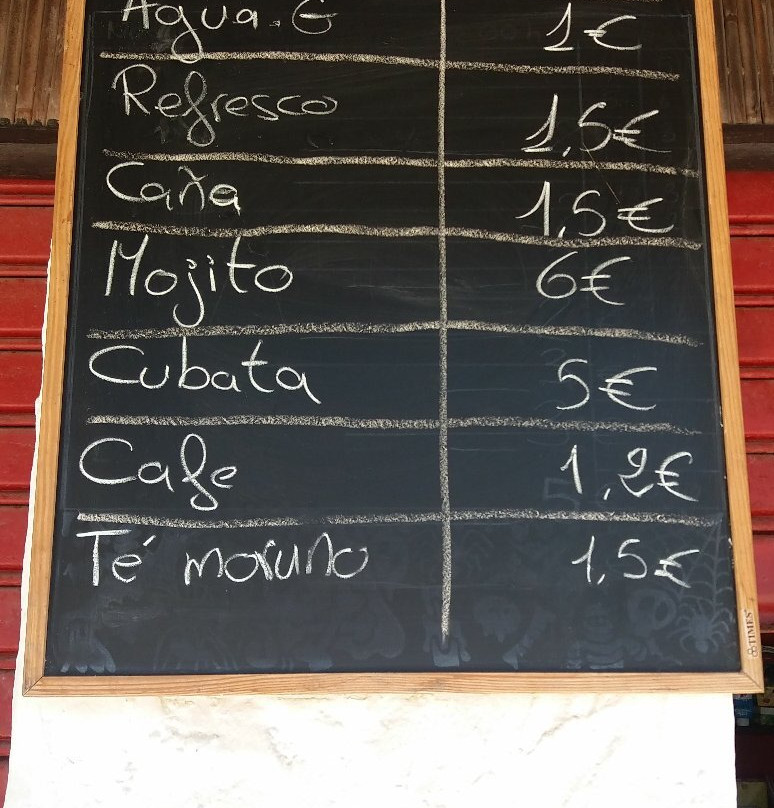 Agua. G 1€
Refresco 1,5€
Caña 1,5€
Mojito 6€
Cubata 5€
Cafe 1,2€
Té moruno 1,5€
TIMES